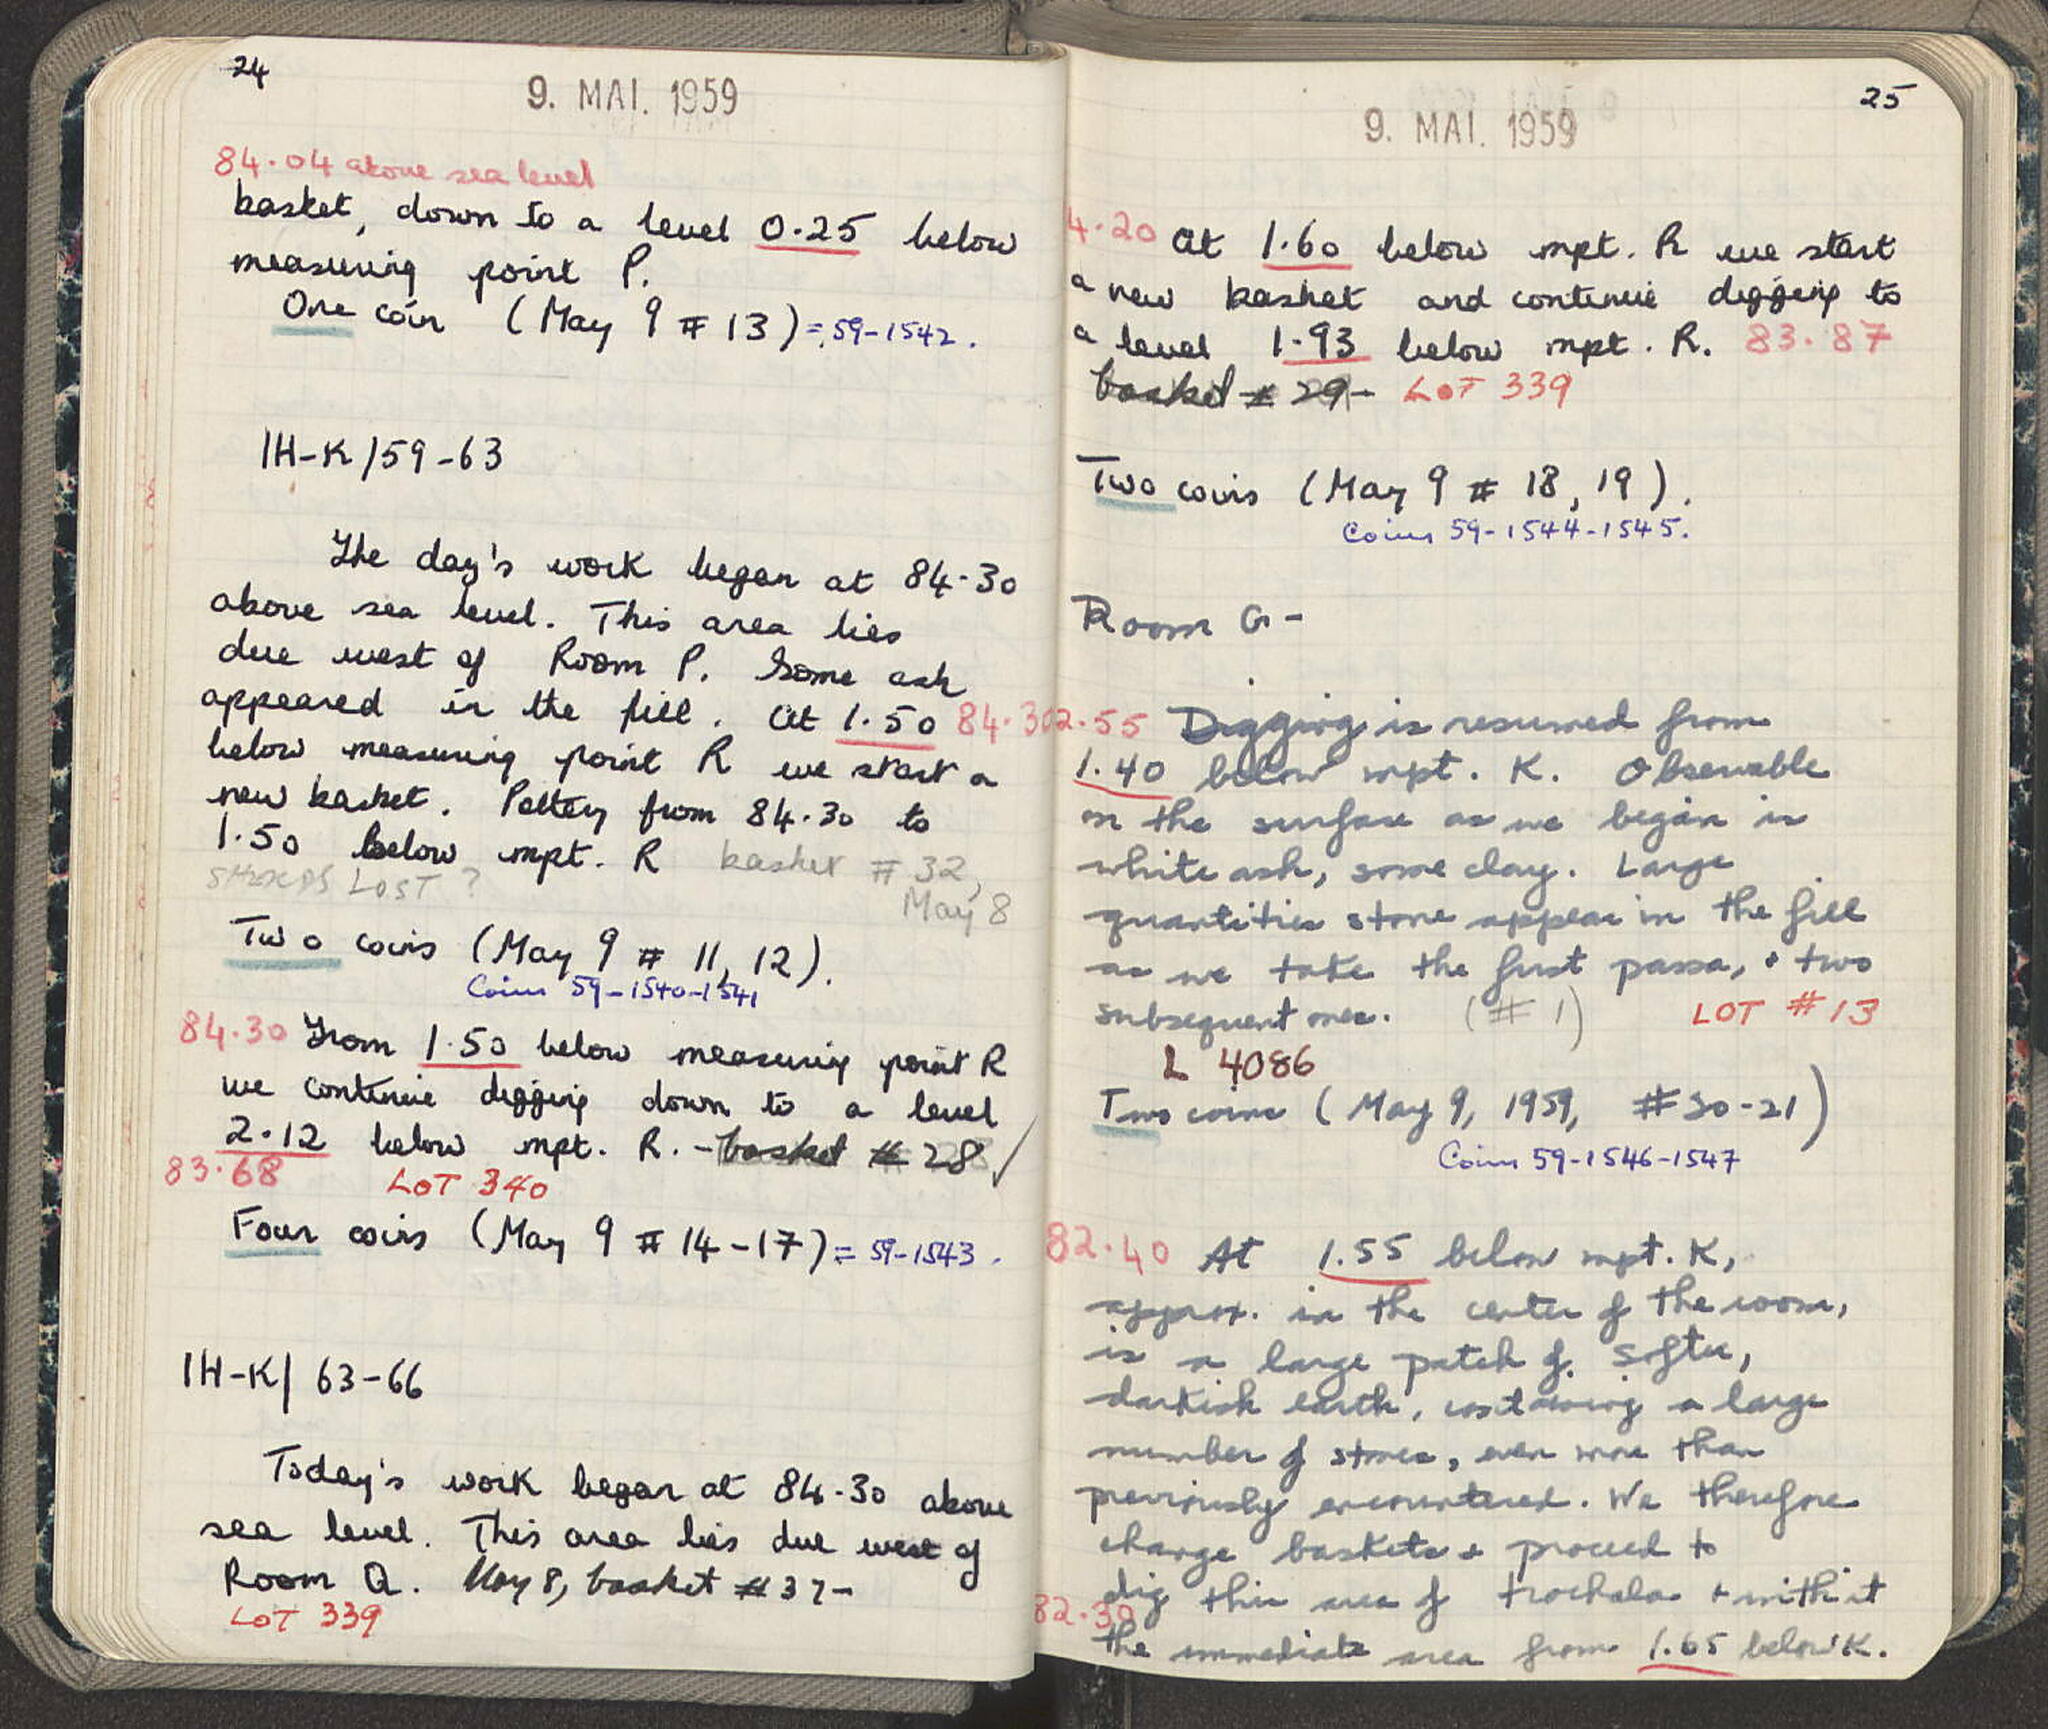 24
9. MAI. 1959
84.04 above sea level
basket, down to a level 0.25 below
measuring point P.
One coin (May 9 # 13) = 59-1542.
IH-K/59-63
The day's work began at 84.30
above sea level. This area lies
due west of Room P. Some ash
appeared in the fill. At 1.50 84.30
below measuring point R we start a
new basket. Pottery from 84.30 to
1.50 below mpt. R basket # 32,
SHERDS LOST ? May 8
Two coins (May 9 # 11, 12).
Coins 59-1540-1541
84.30 From 1.50 below measuring point R
we continue digging down to a level
2.12 below mpt. R. - basket # 28 ✓
83.68 LOT 340
Four coins (May 9 # 14-17) = 59-1543.
IH-K/ 63-66
Today's work began at 84.30 above
sea level. This area lies due west of
Room Q. May 8, basket # 37-
LOT 339
25
9. MAI. 1959
4.20 At 1.60 below mpt. R we start
a new basket and continue digging to
a level 1.93 below mpt. R. 83.87
basket # 29- LOT 339
Two coins (May 9 # 18, 19).
Coins 59-1544-1545.
Room G-
2.55 Digging is resumed from
1.40 below mpt. K. Observable
on the surface as we began is
white ash, some clay. Large
quantities stone appear in the fill
as we take the first passa, + two
subsequent ones. (# 1) LOT # 13
L 4086
Two coins (May 9, 1959, #20-21)
Coins 59-1546-1547
82.40 At 1.55 below mpt. K,
approx. in the center of the room,
is a large patch of softer,
darkish earth, containing a large
number of stones, even more than
previously encountered. We therefore
change baskets + proceed to
dig this area of trochala + with it
82.30 the immediate area from 1.65 below K.